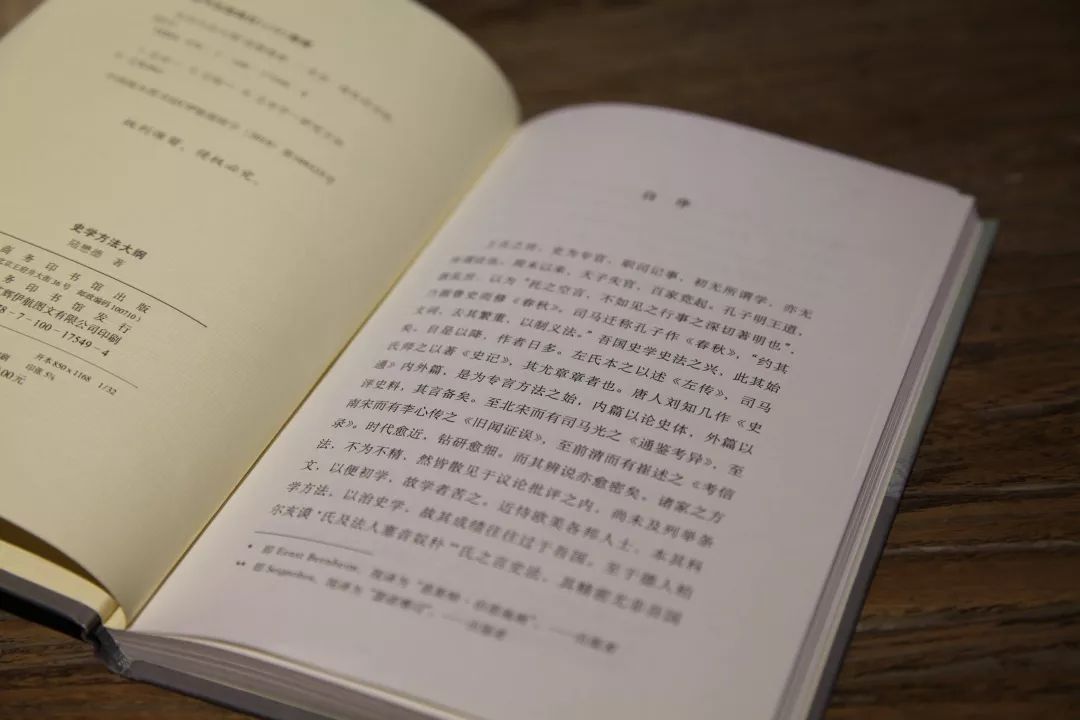 版权保留,侵权必究。
史学方法大纲
陆懋德 著
商务印书馆出版
北京王府井大街36号 邮政编码100710)
务印书馆发行
艺辉伊航图文有限公司印刷
78-7-100-17549-4
开本850×1168 1/32
印张5¾
.00元
自序
上古之世,史为专官,职司记事,初无所谓学,亦无
所谓法也。周末以来,天子失官,百家竞起。孔子明王道,
救乱世,以为“托之空言,不如见之行事之深切著明也”,
乃据鲁史而修《春秋》。司马迁称孔子作《春秋》,“约其
文词,去其繁重,以制义法。”吾国史学史法之兴,此其始
矣。自是以降,作者日多。左氏本之以述《左传》,司马
氏师之以著《史记》,其尤章章者也。唐人刘知几作《史
通》内外篇,是为专言方法之始,内篇以论史体,外篇以
评史料,其言备矣。至北宋而有司马光之《通鉴考异》,至
南宋而有李心传之《旧闻证误》,至前清而有崔述之《考信
录》。时代愈近,钻研愈细。而其辨说亦愈密矣。诸家之方
法,不为不精,然皆散见于议论批评之内,尚未及列举条
文,以便初学,故学者苦之。近待欧美各邦人士,本其科
学方法,以治史学,故其成绩往往过于吾国。至于德人柏
尔亥谟*氏及法人塞音奴朴**氏之言史法,其精密尤非吾国
* 即 Ernest Bernheim,现译为
** 即 Seignobos,现译为